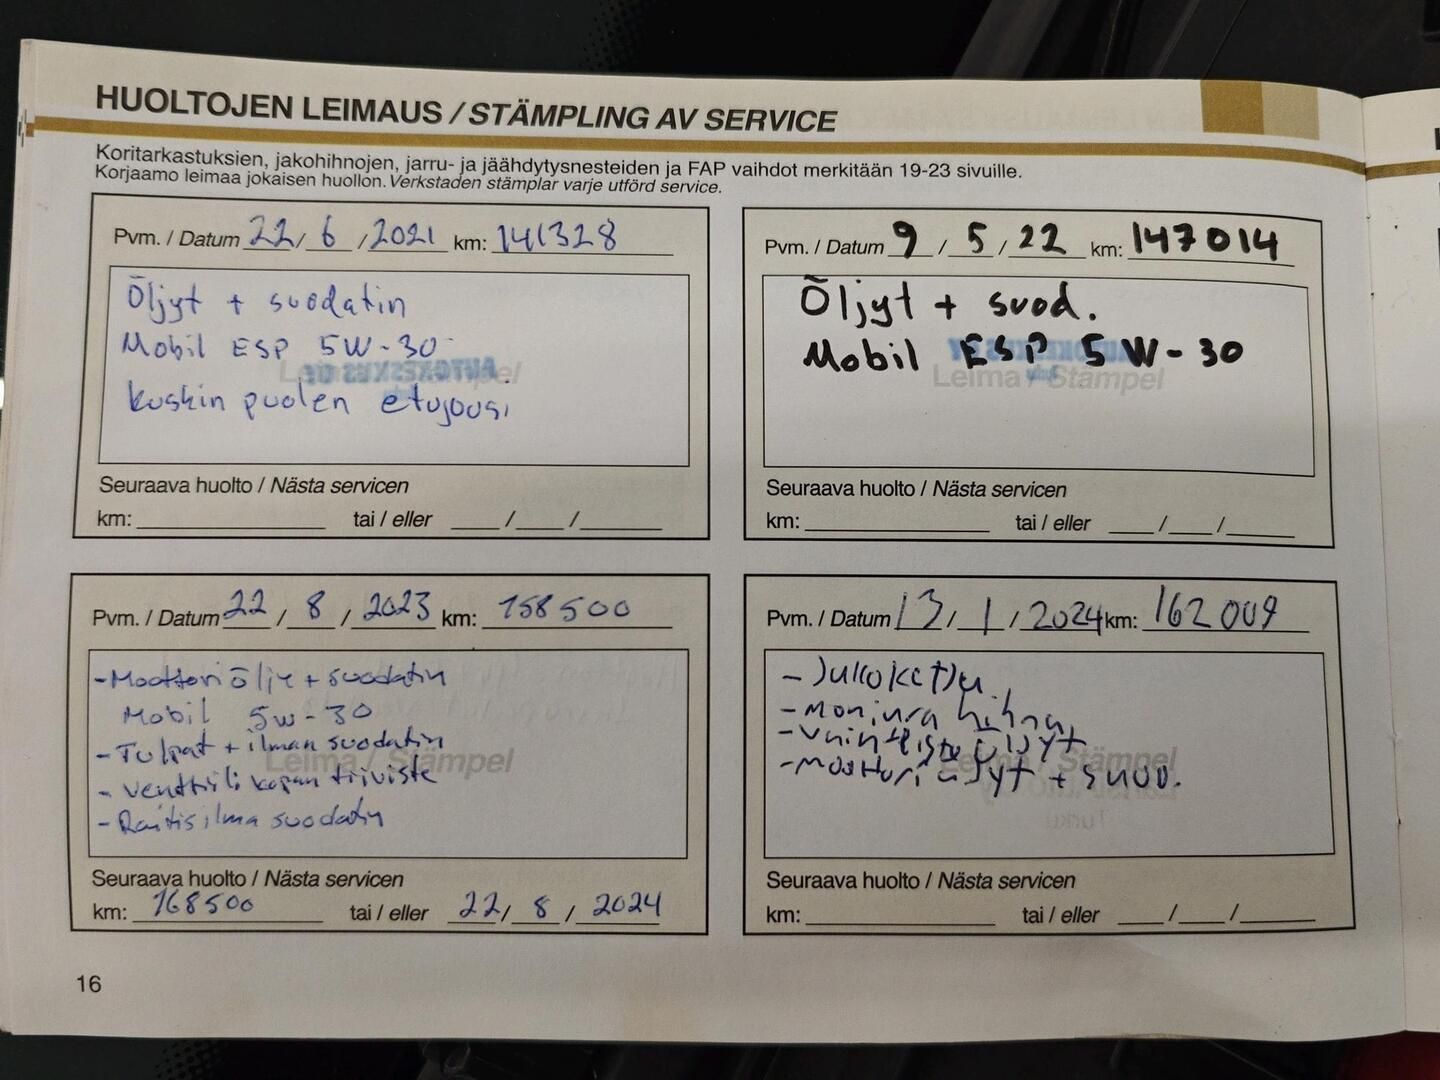 HUOLTOJEN LEIMAUS / STÄMPLING AV SERVICE
Koritarkastuksien, jakohihnojen, jarru- ja jäähdytysnesteiden ja FAP vaihdot merkitään 19-23 sivuille.
Korjaamo leimaa jokaisen huollon. Verkstaden stämplar varje utförd service.
Pvm. / Datum 22 / 6 / 2021 km: 141328
Öljyt + suodatin
Mobil ESP 5W-30
Leima / Stämpel
kuskin puolen etujousi
Seuraava huolto / Nästa servicen
km: tai / eller / /
Pvm. / Datum 9 / 5 / 22 km: 147014
Öljyt + suod.
Mobil ESP 5W-30
Leima / Stämpel
Seuraava huolto / Nästa servicen
km: tai / eller / /
Pvm. / Datum 22 / 8 / 2023 km: 158500
- Moottoriöljy + suodatin
Mobil 5w-30
- Tulpat + ilman suodatin
Leima / Stämpel
- venttiili kopan tiiviste
- Raitisilma suodatin
Seuraava huolto / Nästa servicen
km: 168500 tai / eller 22 / 8 / 2024
Pvm. / Datum 13 / 1 / 2024 km: 162009
- Jakoketju
- moniura hihna
- öljyt
Leima / Stämpel
- moottori öljyt + suod.
Seuraava huolto / Nästa servicen
km: tai / eller / /
16